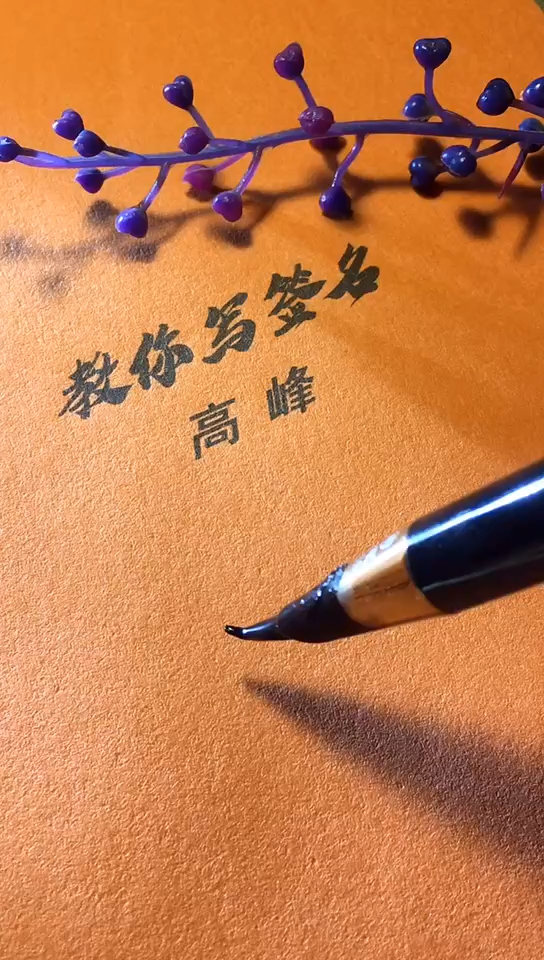 教你写签名
高峰